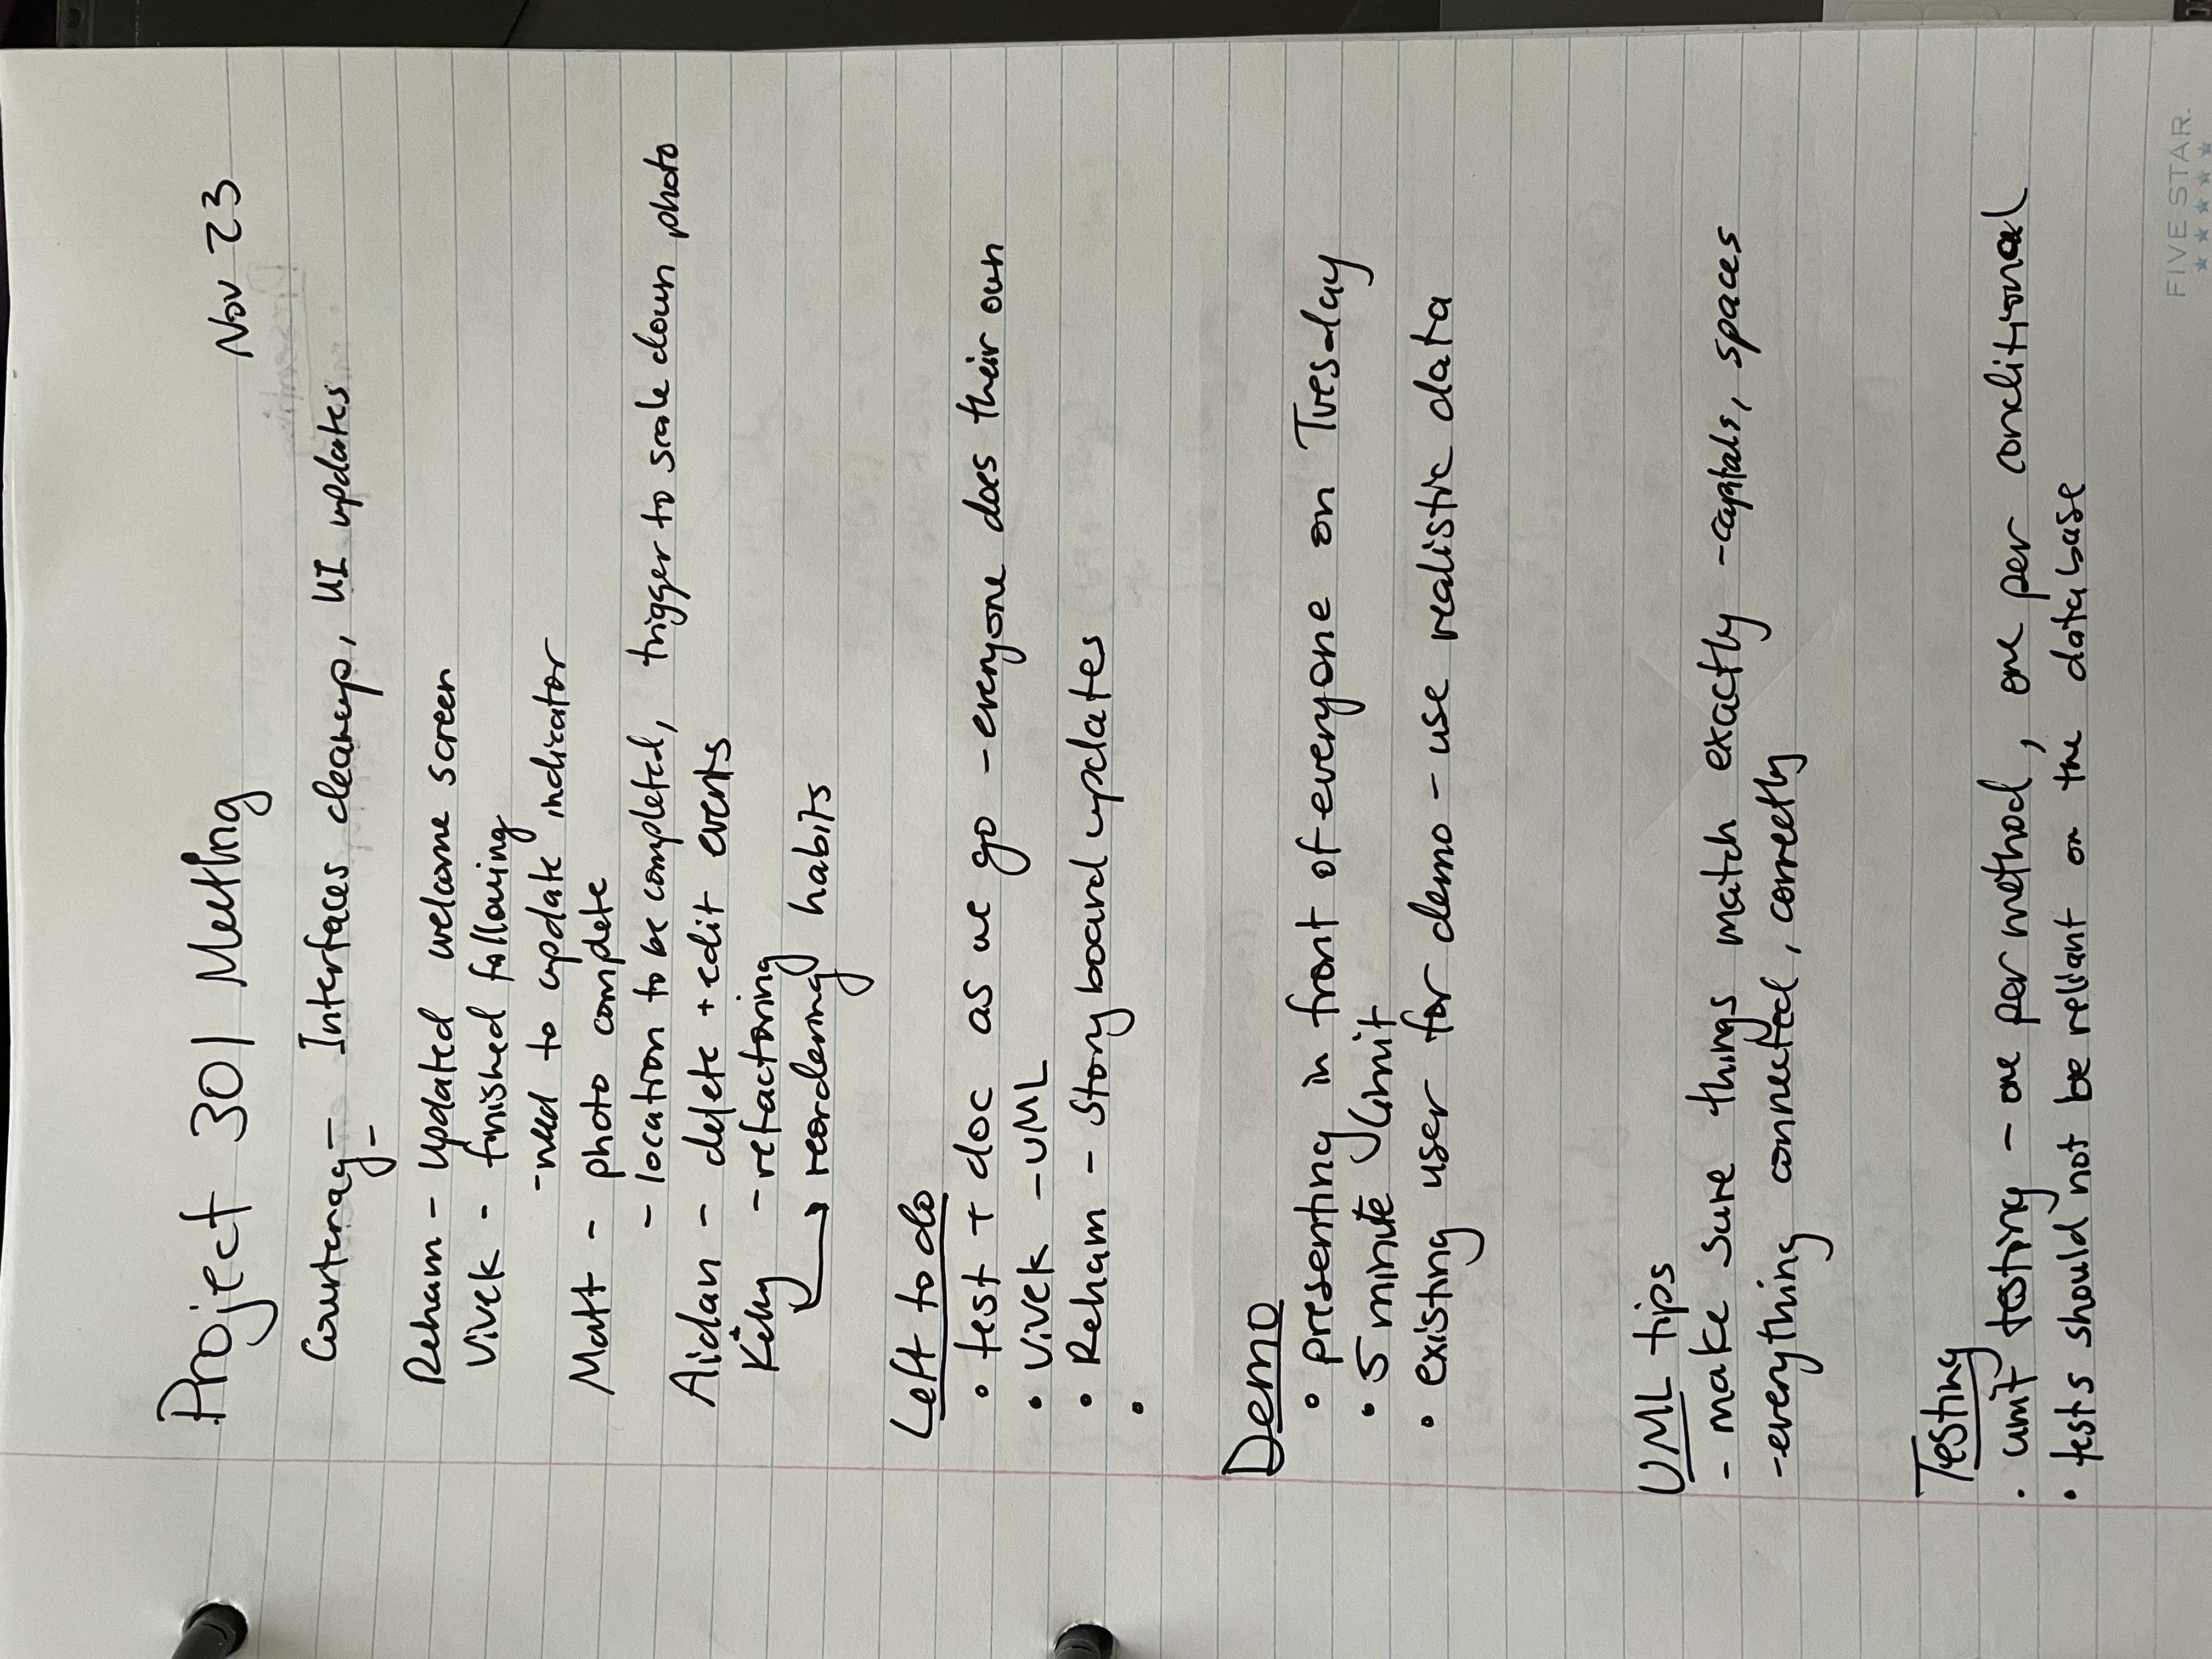 Project 301 Meeting Nov 23
Courtenay - Interfaces cleanup, UI updates
-
Reham - Updated welcome screen
Vivek - finished following
- need to update indicator
Matt - photo complete
- location to be completed, trigger to scale down photo
Aidan - delete + edit events
- refactoring
reordering habits
Left to do
• test + doc as we go - everyone does their own
• Vivek - UML
• Reham - Storyboard updates
•
Demo
• presenting in front of everyone on Tuesday
• 5 minute limit
• existing user for demo - use realistic data
UML tips
- make sure things match exactly - capitals, spaces
- everything connected, correctly
Testing
• unit testing - one per method, one per conditional
• tests should not be reliant on the database
FIVE STAR.